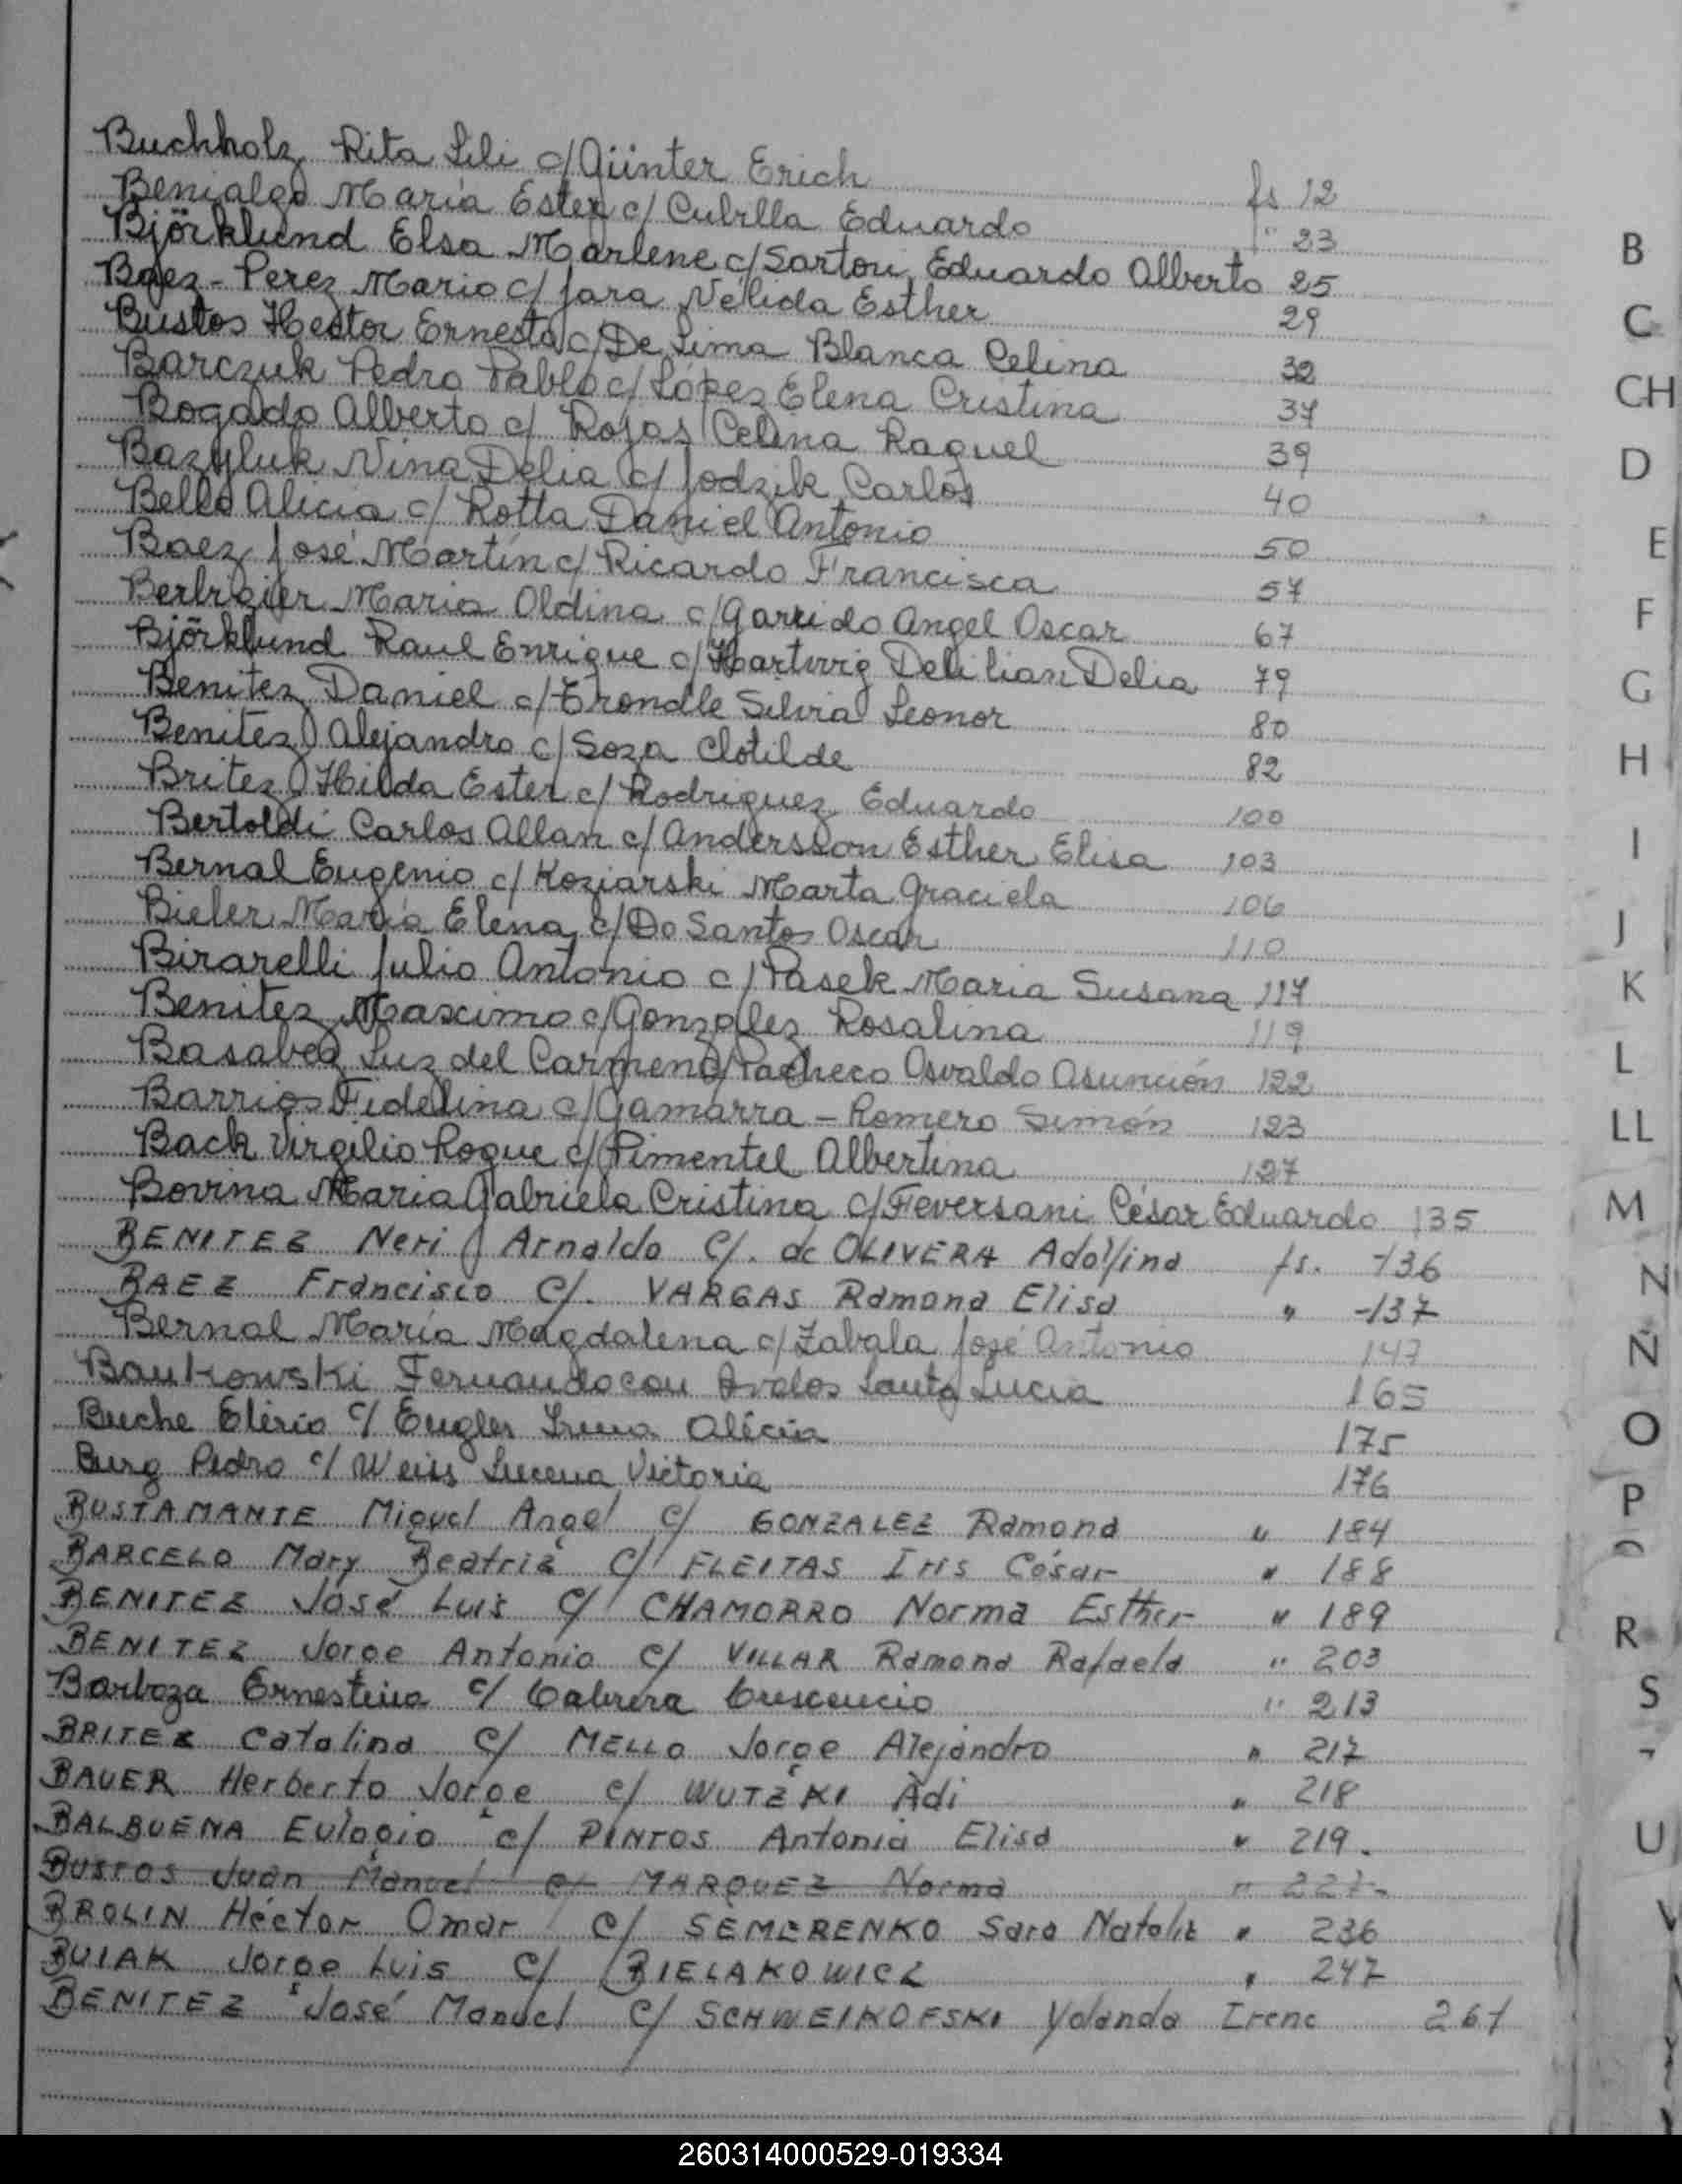 Buchholz Rita Lili c/ Günter Erich fs 12
Benialgo María Ester c/ Cubilla Eduardo " 23
Björklund Elsa Marlene c/ Sartori Eduardo Alberto 25
Baez - Perez Mario c/ Jara Nélida Esther 29
Bustos Hector Ernesto c/ De Lima Blanca Celina 32
Barczuk Pedro Pablo c/ López Elena Cristina 37
Bogado Alberto c/ Rojas Celina Raquel 39
Bazyluk Nina Delia c/ Jodzik Carlos 40
Bello Alicia c/ Rotta Daniel Antonio 50
Baez José Martín c/ Ricardo Francisca 57
Maria Oldina c/ Garrido Angel Oscar 67
Björklund Raul Enrique c/ Hartwig Delilian Delia 79
Benitez Daniel c/ Trondle Silvia Leonor 80
Benitez Alejandro c/ Soza Clotilde 82
Britez Hilda Ester c/ Rodriguez Eduardo 100
Bertoldi Carlos Allan c/ Andersson Esther Elisa 103
Bernal Eugenio c/ Koziarski Marta Graciela 106
Bieler María Elena c/ Do Santos Oscar 110
Birarelli Julio Antonio c/ Pasek Maria Susana 117
Benitez Maximo c/ Gonzalez Rosalina 119
Basabez Luz del Carmen c/ Pacheco Osvaldo Asunción 122
Barrios Fidelina c/ Gamarra - Romero Simón 123
Back Virgilio Roque c/ Pimentel Albertina 127
Bovina Maria Gabriela Cristina c/ Feversani César Eduardo 135
BENITEZ Neri Arnaldo c/. de OLIVERA Adolfina fs. -136
BAEZ Francisco c/. VARGAS Ramona Elisa " -137
Bernal María Magdalena c/ Zabala José Antonio 147
Baukowski Fernando con Avalos Santa Lucia 165
Buche Elirio c/ Eugler Irma Alicia 175
Burg Pedro c/ Weiss Lucena Victoria 176
BUSTAMANTE Miguel Angel c/ GONZALEZ Ramona " 184
BARCELO Mary Beatriz c/ FLEITAS Iris César " 188
BENITEZ José Luis c/ CHAMORRO Norma Esther " 189
BENITEZ Jorge Antonio c/ VILLAR Ramona Rafaela " 203
Barboza Ernestina c/ Cabrera Crescencio " 213
BRITEZ Catalina c/ MELLO Jorge Alejandro " 217
BAUER Herberto Jorge c/ WUTZKI Adi " 218
BALBUENA Eulogio c/ PINTOS Antonia Elisa " 219.
BUSTOS Juan Manuel c/ MARQUEZ Norma " 227-
BROLIN Héctor Omar c/ SEMERENKO Sara Natalia " 236
BUIAK Jorge Luis c/ BIELAKOWICZ " 247
BENITEZ José Manuel c/ SCHWEIKOFSKI Yolanda Irene 261
B
C
CH
D
E
F
G
H
I
J
K
L
LL
M
N
Ñ
O
P
R
S
U
V
260314000529-019334